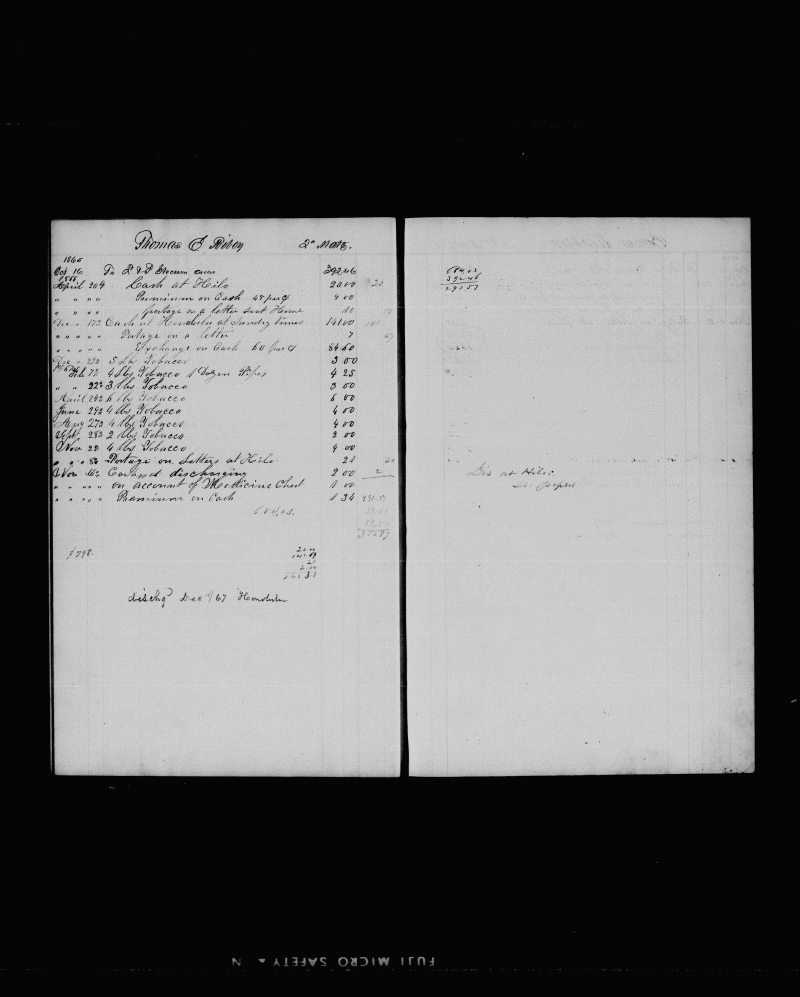 Thomas E 2d Mate.
1865
Oct 16 To 392.46
1866
April 20th Cash at Hilo 20 00 20
" " " " Premium on Cash 4 00
" " " " postage on a letter sent Home 10 10
Cash at Honolulu at Sundry times 141 00 141
" " " " " Postage on a letter 7 07
" " " " " Exchange on Cash 60 per ct 84.60
5 lbs Tobacco 3 00
1867
Feb 7th 4 lbs Tobacco 1 Dozen Pipes 4 25
" " 22d 3 lbs Tobacco 3 00
April 24d 6 lbs Tobacco 6 00
June 29d 4 lbs Tobacco 4 00
27d 4 lbs Tobacco 4 00
Sept 28d 2 lbs Tobacco 2 00
Nov 2d 4 lbs Tobacco 4 00
" " 8d Postage on Letters at Hilo 21
Nov discharging 2 00 2
" " " " on account of Medicine Chest 1 00
" " " " Premium on Cash 1 34
684.03
20.00
141.07
21
2.00
dischg Dec /67 Honolulu
684.03
392.46
291.57
Dis at Hilo